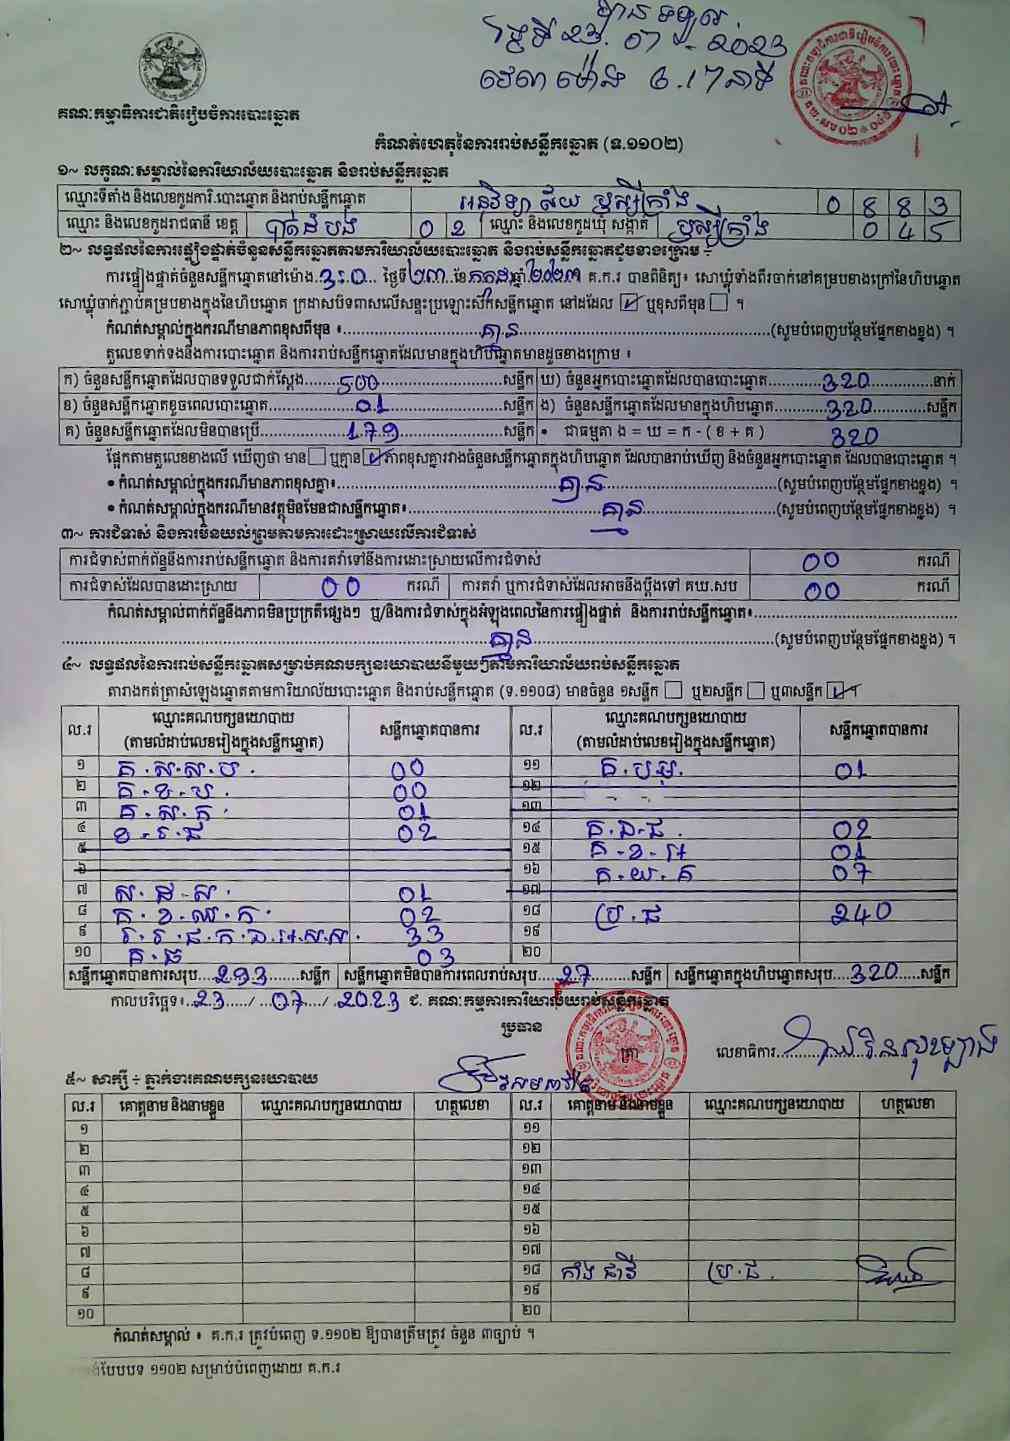 បានទទួល
ថ្ងៃទី 23. 07 - 2023
វេលា ម៉ោង ៤.17 នាទី
គណៈកម្មាធិការជាតិរៀបចំការបោះឆ្នោត
កំណត់ហេតុនៃការរាប់សន្លឹកឆ្នោត (ទ.១១០២)
១~ លក្ខណៈសម្គាល់នៃការិយាល័យបោះឆ្នោត និងរាប់សន្លឹកឆ្នោត
ឈ្មោះទីតាំង និងលេខកូដការិ.បោះឆ្នោត និងរាប់សន្លឹកឆ្នោត អនុវិទ្យាល័យ ឫស្សីក្រាំង 0 8 8 3
ឈ្មោះ និងលេខកូដរាជធានី ខេត្ត បាត់ដំបង 0 2 ឈ្មោះ និងលេខកូដឃុំ សង្កាត់ ឫស្សីក្រាំង 0 4 5
២~ លទ្ធផលនៃការផ្ទៀងផ្ទាត់ចំនួនសន្លឹកឆ្នោតតាមការិយាល័យបោះឆ្នោត និងរាប់សន្លឹកឆ្នោតដូចខាងក្រោម ÷
ការផ្ទៀងផ្ទាត់ចំនួនសន្លឹកឆ្នោតនៅម៉ោង 3:០ ថ្ងៃទី ២៣ ខែ កក្កដា ឆ្នាំ ២០២៣ គ.ក.រ បានពិនិត្យ៖ សោឃ្លុំទាំងពីរចាក់នៅគម្របខាងក្រៅនៃហិបឆ្នោត
សោឃ្លុំចាក់ភ្ជាប់គម្របខាងក្នុងនៃហិបឆ្នោត ក្រដាសបិទពាសលើសន្ទះប្រឡោះស៊កសន្លឹកឆ្នោត នៅដដែល ☑ ឬខុសពីមុន ☐ ។
កំណត់សម្គាល់ក្នុងករណីមានភាពខុសពីមុន ៖ គ្មាន (សូមបំពេញបន្ថែមផ្នែកខាងខ្នង) ។
តួលេខទាក់ទងនឹងការបោះឆ្នោត និងការរាប់សន្លឹកឆ្នោតដែលមានក្នុងហិបឆ្នោតមានដូចខាងក្រោម ៖
ក) ចំនួនសន្លឹកឆ្នោតដែលបានទទួលជាក់ស្តែង 500 សន្លឹក ឃ) ចំនួនអ្នកបោះឆ្នោតដែលបានបោះឆ្នោត 320 នាក់
ខ) ចំនួនសន្លឹកឆ្នោតខូចពេលបោះឆ្នោត 01 សន្លឹក ង) ចំនួនសន្លឹកឆ្នោតដែលមានក្នុងហិបឆ្នោត 320 សន្លឹក
គ) ចំនួនសន្លឹកឆ្នោតដែលមិនបានប្រើ 179 សន្លឹក • ជាធម្មតា ង = ឃ = ក - ( ខ + គ ) 320
ផ្អែកតាមតួលេខខាងលើ ឃើញថា មាន ☐ ឬគ្មាន ☑ ភាពខុសគ្នារវាងចំនួនសន្លឹកឆ្នោតក្នុងហិបឆ្នោត ដែលបានរាប់ឃើញ និងចំនួនអ្នកបោះឆ្នោត ដែលបានបោះឆ្នោត ។
• កំណត់សម្គាល់ក្នុងករណីមានភាពខុសគ្នា៖ គ្មាន (សូមបំពេញបន្ថែមផ្នែកខាងខ្នង) ។
• កំណត់សម្គាល់ក្នុងករណីមានវត្ថុមិនមែនជាសន្លឹកឆ្នោត៖ គ្មាន (សូមបំពេញបន្ថែមផ្នែកខាងខ្នង) ។
៣~ ការជំទាស់ និងការមិនយល់ព្រមតាមការដោះស្រាយលើការជំទាស់
ការជំទាស់ពាក់ព័ន្ធនឹងការរាប់សន្លឹកឆ្នោត និងការតវ៉ាទៅនឹងការដោះស្រាយលើការជំទាស់ 00 ករណី
ការជំទាស់ដែលបានដោះស្រាយ 00 ករណី ការតវ៉ា ឬការជំទាស់ដែលអាចនឹងប្តឹងទៅ គឃ.សប 00 ករណី
កំណត់សម្គាល់ពាក់ព័ន្ធនឹងភាពមិនប្រក្រតីផ្សេងៗ ឬ/និងការជំទាស់ក្នុងអំឡុងពេលនៃការផ្ទៀងផ្ទាត់ និងការរាប់សន្លឹកឆ្នោត៖
គ្មាន (សូមបំពេញបន្ថែមផ្នែកខាងខ្នង) ។
៤~ លទ្ធផលនៃការរាប់សន្លឹកឆ្នោតសម្រាប់គណបក្សនយោបាយនីមួយៗតាមការិយាល័យរាប់សន្លឹកឆ្នោត
តារាងកត់ត្រាសំឡេងឆ្នោតតាមការិយាល័យបោះឆ្នោត និងរាប់សន្លឹកឆ្នោត (ទ.១១០៨) មានចំនួន ១សន្លឹក ☐ ឬ២សន្លឹក ☐ ឬ៣សន្លឹក ☑ ។
ល.រ ឈ្មោះគណបក្សនយោបាយ (តាមលំដាប់លេខរៀងក្នុងសន្លឹកឆ្នោត) សន្លឹកឆ្នោតបានការ ល.រ ឈ្មោះគណបក្សនយោបាយ (តាមលំដាប់លេខរៀងក្នុងសន្លឹកឆ្នោត) សន្លឹកឆ្នោតបានការ
១ គ.ស.ស.ប. 00 ១១ គ.ប.ឆ. 01
២ គ.ខ.ប. 00 ១២
៣ គ.ស.ក. 01 ១៣
៤ ខ.រ.ជ 02 ១៤ គ.ឯ.ជ. 02
៥ ១៥ គ.ខ.អ 01
៦ ១៦ គ.យ.គ 07
៧ ស.ជ.ស. 01 ១៧
៨ គ.ខ.ឈ.ក. 02 ១៨ ប្រ.ជ 240
៩ រ.រ.ជ.ក.ឯ.អ.ស.ស. 33 ១៩
១០ គ.ធ 03 ២០
សន្លឹកឆ្នោតបានការសរុប 293 សន្លឹក សន្លឹកឆ្នោតមិនបានការពេលរាប់សរុប 27 សន្លឹក សន្លឹកឆ្នោតក្នុងហិបឆ្នោតសរុប 320 សន្លឹក
កាលបរិច្ឆេទ៖ 23 / 07 / 2023 ជ. គណៈកម្មការការិយាល័យរាប់សន្លឹកឆ្នោត
ប្រធាន
ត្រា
លេខាធិការ
៥~ សាក្សី ÷ ភ្នាក់ងារគណបក្សនយោបាយ
ល.រ គោត្តនាម និងនាមខ្លួន ឈ្មោះគណបក្សនយោបាយ ហត្ថលេខា ល.រ គោត្តនាម និងនាមខ្លួន ឈ្មោះគណបក្សនយោបាយ ហត្ថលេខា
១ ១១
២ ១២
៣ ១៣
៤ ១៤
៥ ១៥
៦ ១៦
៧ ១៧
៨ ១៨ កាំង ដាវី ប្រ.ជ.
៩ ១៩
១០ ២០
កំណត់សម្គាល់ ៖ គ.ក.រ ត្រូវបំពេញ ទ.១១០២ ឱ្យបានត្រឹមត្រូវ ចំនួន ៣ច្បាប់ ។
បែបបទ ១១០២ សម្រាប់បំពេញដោយ គ.ក.រ